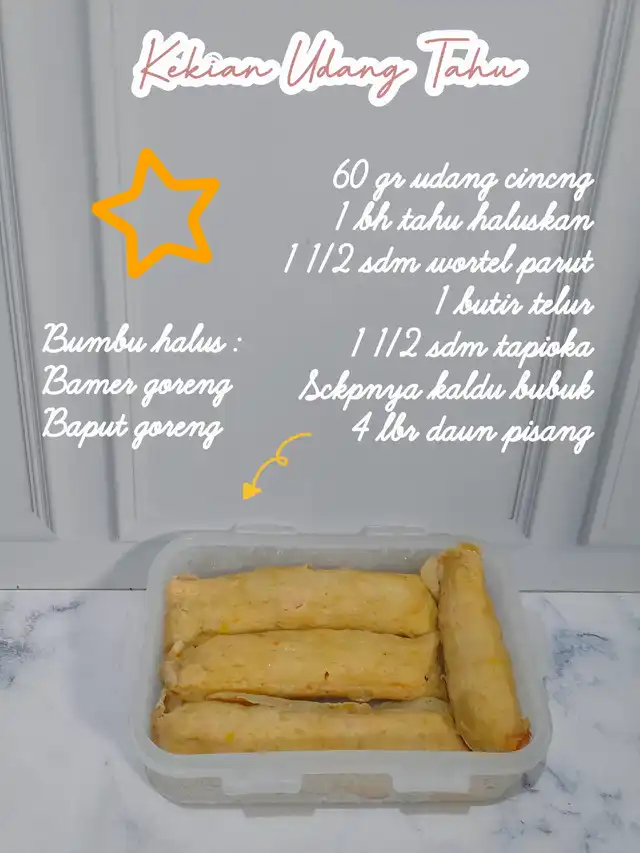 Kekian Udang Tahu
60 gr udang cincng
1 bh tahu haluskan
1 1/2 sdm wortel parut
1 butir telur
1 1/2 sdm tapioka
Sckpnya kaldu bubuk
4 lbr daun pisang
Bumbu halus :
Bamer goreng
Baput goreng